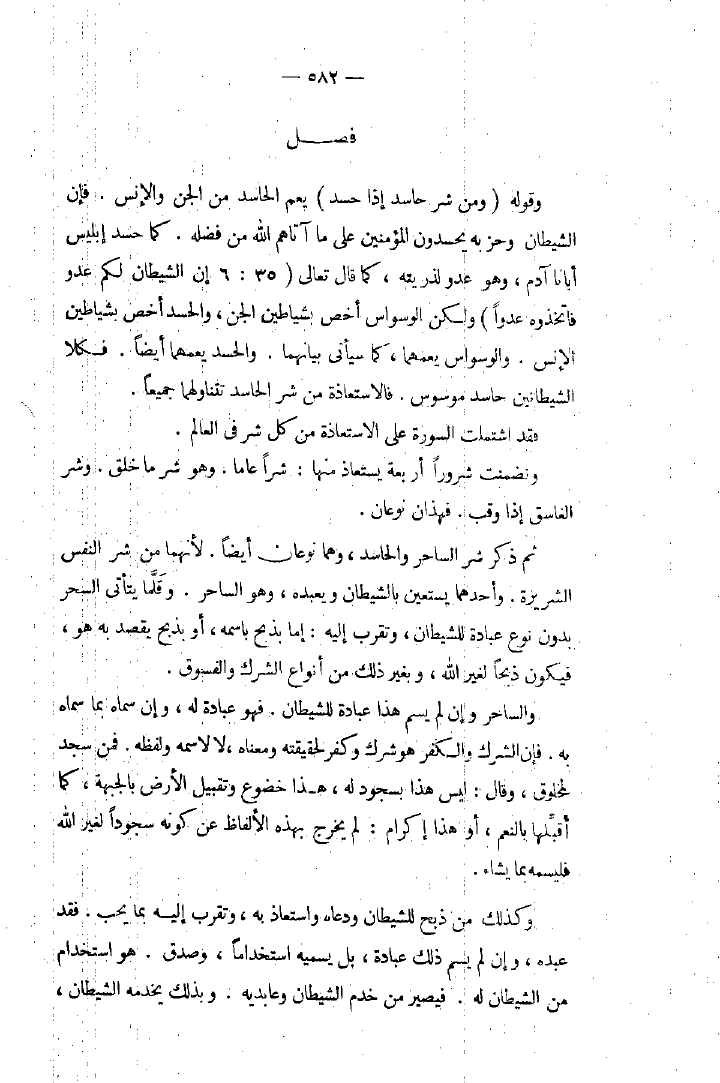 — ٥٨٢ —
فصـــــل
وقوله ( ومن شر حاسد إذا حسد ) يعم الحاسد من الجن والإنس . فإن
الشيطان وحزبه يحسدون المؤمنين على ما آتاهم الله من فضله . كما حسد إبليس
أبانا آدم ، وهو عدو لذريته ، كما قال تعالى ( ٣٥ : ٦ إن الشيطان لكم عدو
فاتخذوه عدواً ) ولكن الوسواس أخص بشياطين الجن ، والحسد أخص بشياطين
الإنس . والوسواس يعمهما ، كما سيأتى بيانهما . والحسد يعمهما أيضاً . فكلا
الشيطانين حاسد موسوس . فالاستعاذة من شر الحاسد تتناولهما جميعاً .
فقد اشتملت السورة على الاستعاذة من كل شر فى العالم .
وتضمنت شروراً أربعة يستعاذ منها : شراً عاما . وهو شر ما خلق . وشر
الغاسق إذا وقب . فهذان نوعان .
ثم ذكر شر الساحر والحاسد ، وهما نوعان أيضاً . لأنهما من شر النفس
الشريرة . وأحدهما يستعين بالشيطان ويعبده ، وهو الساحر . وقَلَّما يتأتى السحر
بدون نوع عبادة للشيطان ، وتقرب إليه : إما بذبح باسمه ، أو بذبح يقصد به هو ،
فيكون ذبحاً لغير الله ، وبغير ذلك من أنواع الشرك والفسوق .
والساحر وإن لم يسم هذا عبادة للشيطان . فهو عبادة له ، وإن سماه بما سماه
به . فإن الشرك والكفر هو شرك وكفر لحقيقته ومعناه ، لا لاسمه ولفظه . فمن سجد
لمخلوق ، وقال : ليس هذا بسجود له ، هذا خضوع وتقبيل الأرض بالجبهة ، كما
أقبِّلها بالنعم ، أو هذا إكرام : لم يخرج بهذه الألفاظ عن كونه سجوداً لغير الله
فليسمه بما يشاء .
وكذلك من ذبح للشيطان ودعاه واستعاذ به ، وتقرب إليه بما يحب . فقد
عبده ، وإن لم يسم ذلك عبادة ، بل يسميه استخداماً ، وصدق . هو استخدام
من الشيطان له . فيصير من خدم الشيطان وعابديه . وبذلك يخدمه الشيطان ،